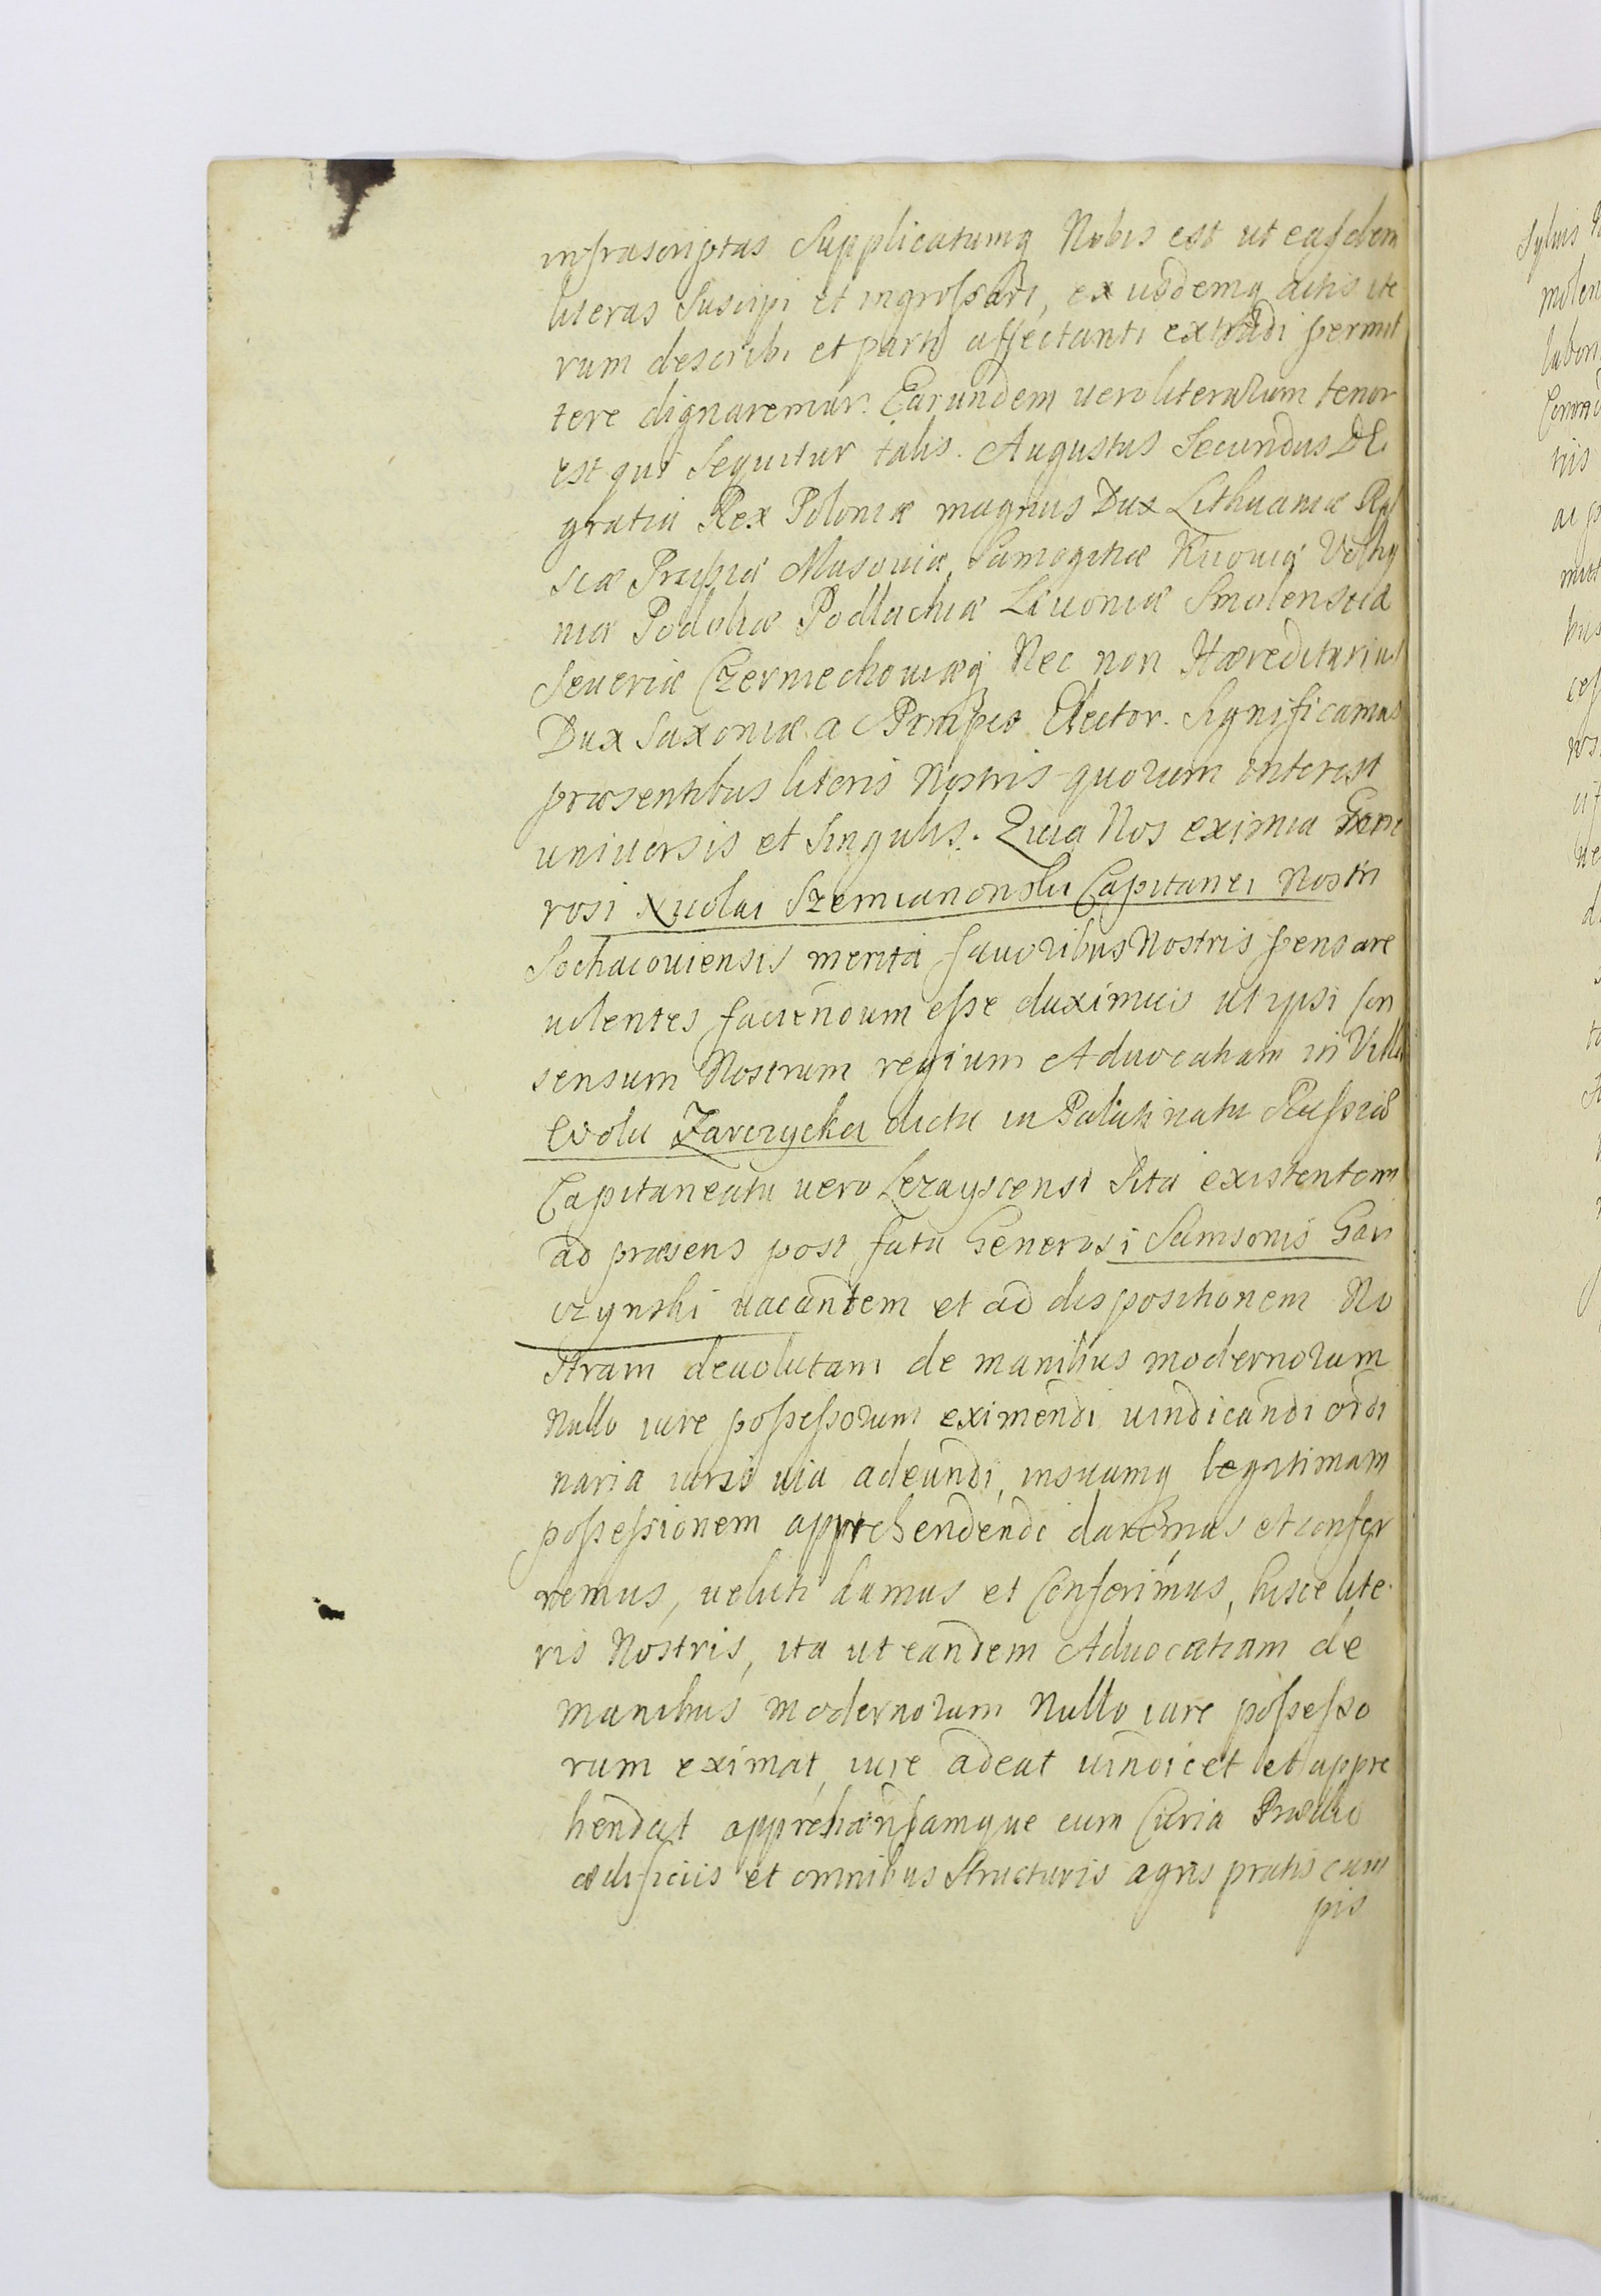 infrascriptas Supplicatumq Nobis est ut easdem
literas Suscipi et ingrossari, ex iisdemq actis ite
rum describi et parti affectanti extradi permit
tere dignaremur. Earundem vero literarum tenor
est qui Sequitur talis. Augustus Secundus DEi
gratia Rex Poloniæ magnus Dux Lithuaniæ Rus
siæ Prussiæ Masoviæ Samogitiæ Kijoviæ Volhy
niæ Podoliæ Podlachiæ Livoniæ Smolensciæ
Severiæ Czerniechoviæq Nec non Hæreditarius
Dux Saxoniæ a Princeps Elector. Significamus
præsentibus literis Nostris quorum interest
universis et Singulis. Quia Nos eximia Gene
rosi Szemianonski Capitanei Nostri
Sochacoviensis merita favoribus Nostris pensare
volentes faciendum esse duximus ut ipsi Con
sensum Nostrum regium Advocatiam in Villa
Wola Zarczycka dicta in Palatinatu Russiæ
Capitaneatu vero Lezayscensi Sita existentem
ad præsens post fata Generosi Samsonis Gar
czynski vacantem et ad dispositionem No
Stram devolutam de manibus modernorum
Nullo iure possessorum eximendi vindicandi ordi
naria iuris via adeundi, insuamq legitimam
possessionem apprehendendi daremus et confer
remus, veluti damus et Conferimus, hisce lite
ris Nostris, ita ut eandem Advocatiam de
manibus modernorum Nullo iure possesso
rum eximat, iure adeat vindicet et appre
hendat apprehensamque cum Curia Prædio
ædificiis et omnibus Structuris agris pratis cam
pis